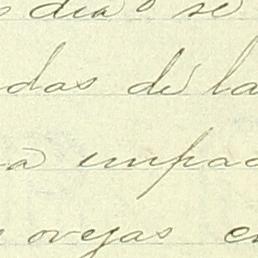 dia se
das de la
a empa
ovejas